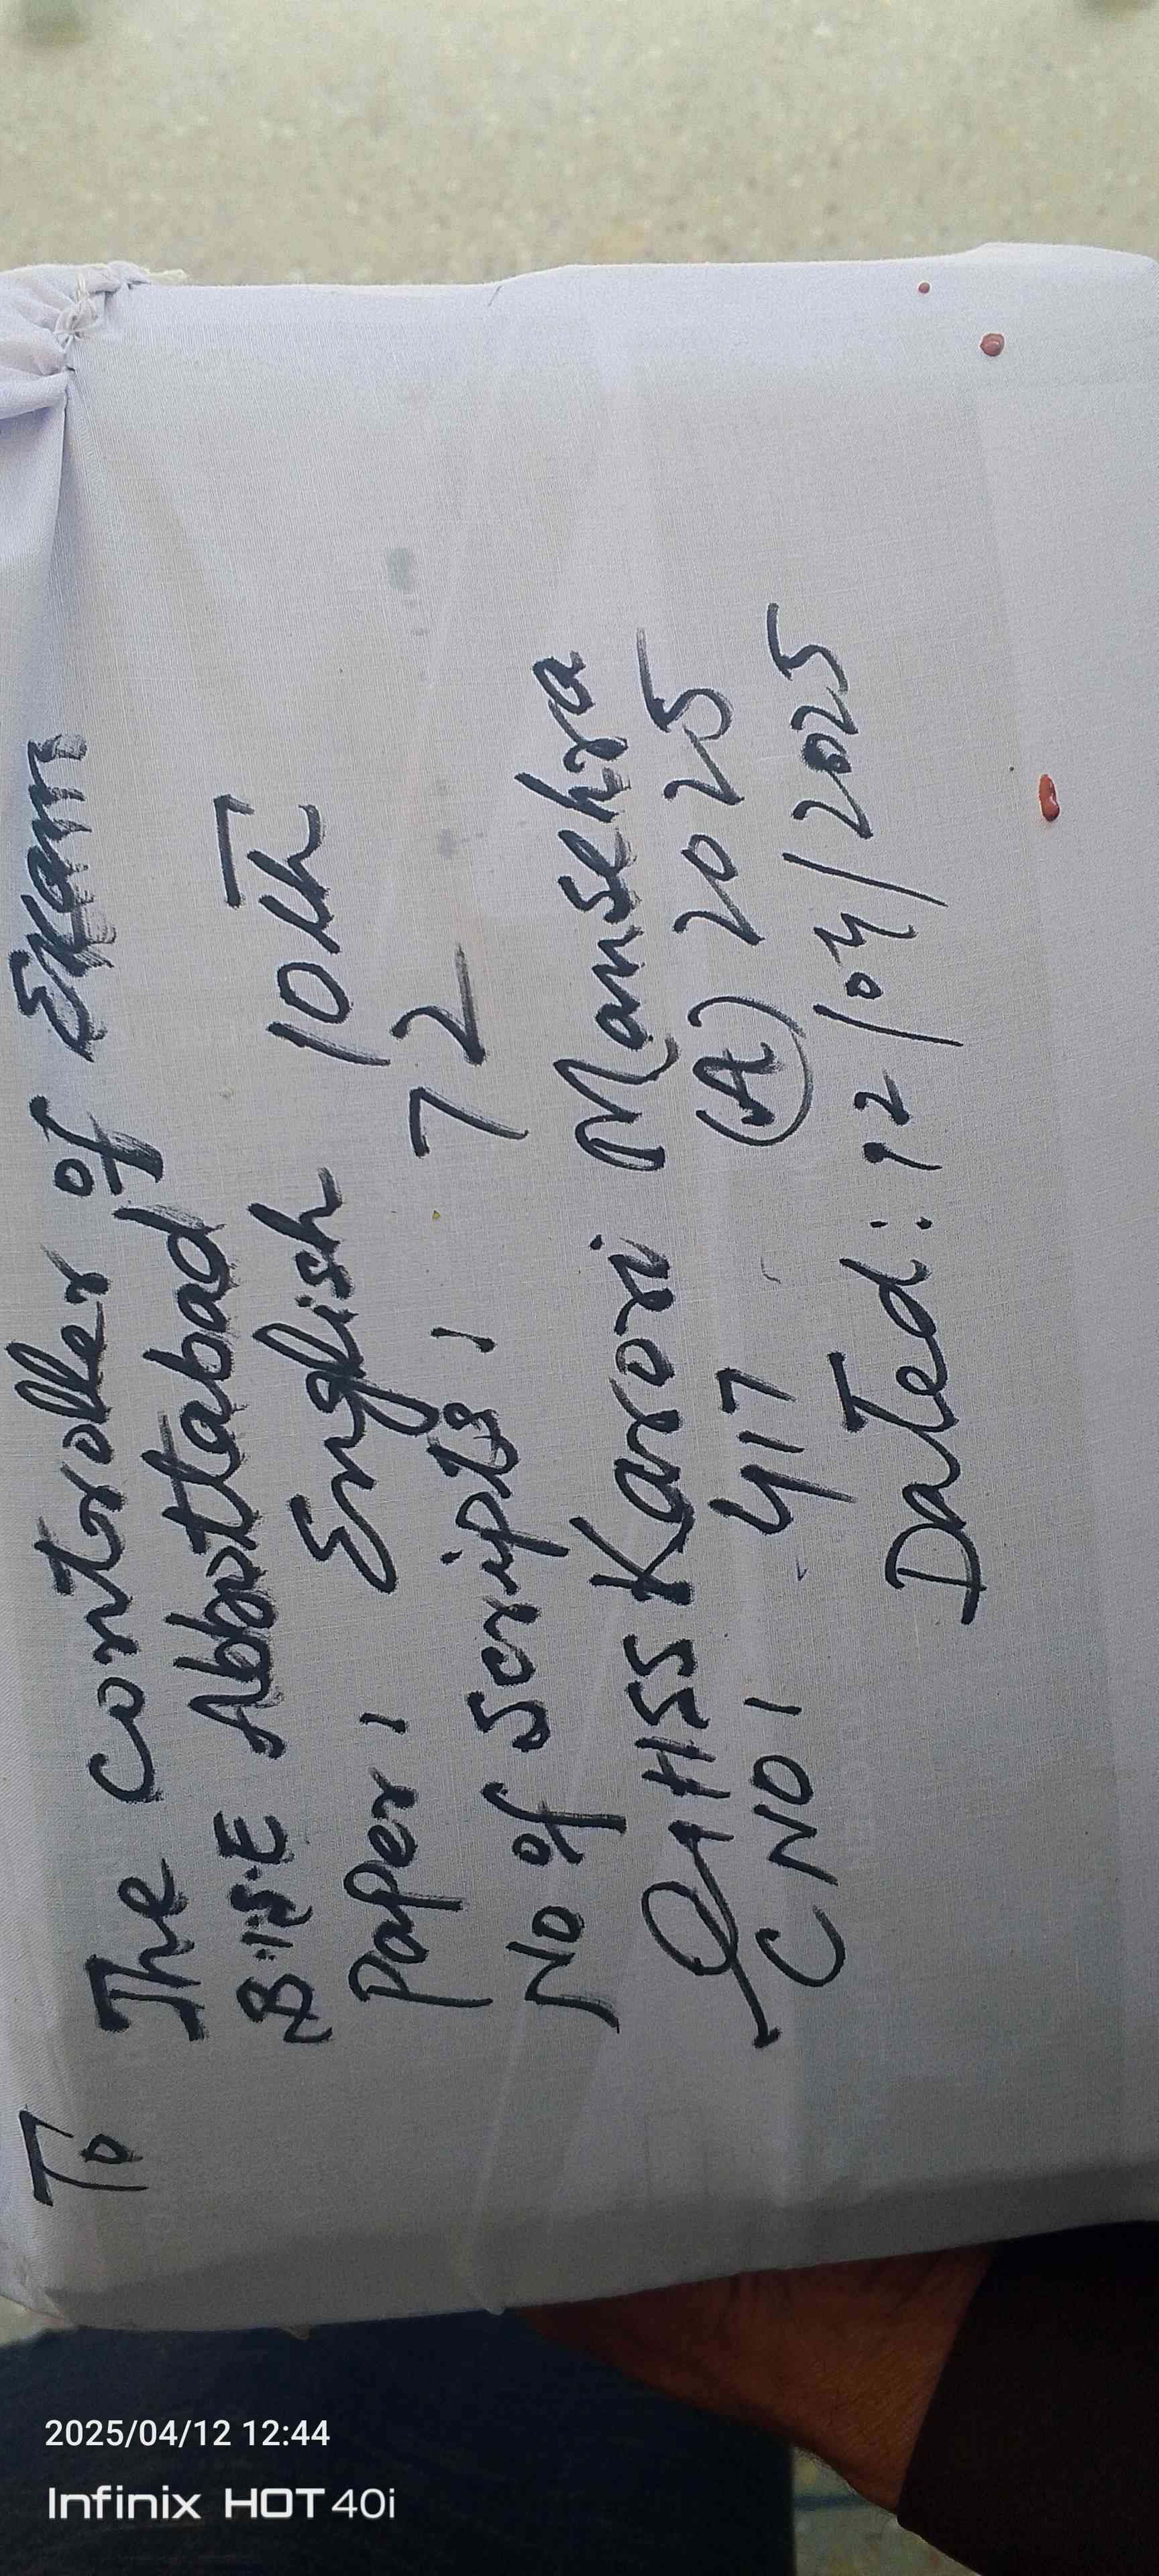 To
The Controller of Exam
B.I.S.E Abbottabad
Paper: English 10th
No of Scripts: 72
GHSS Karori Mansehra
C NO: 417 (A) 2025
Dated: 12/04/2025
2025/04/12 12:44
Infinix HOT 40i